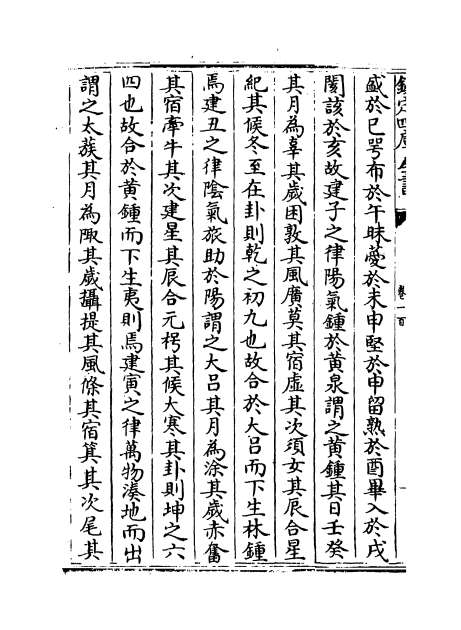 欽定四庫全書
卷一百
盛於巳咢布於午昧薆於未申堅於申留熟於酉畢入於戌
閡該於亥故建子之律陽氣鍾於黄泉謂之黄鍾其日壬癸
其月為辜其歲困敦其風廣莫其宿虛其次須女其辰合星
紀其候冬至在卦則乾之初九也故合於大吕而下生林鍾
焉建丑之律隂氣旅助於陽謂之大吕其月為涂其歲赤奮
其宿牽牛其次建星其辰合元枵其候大寒其卦則坤之六
四也故合於黄鍾而下生夷則焉建寅之律萬物湊地而出
謂之太蔟其月為陬其歲攝提其風條其宿箕其次尾其